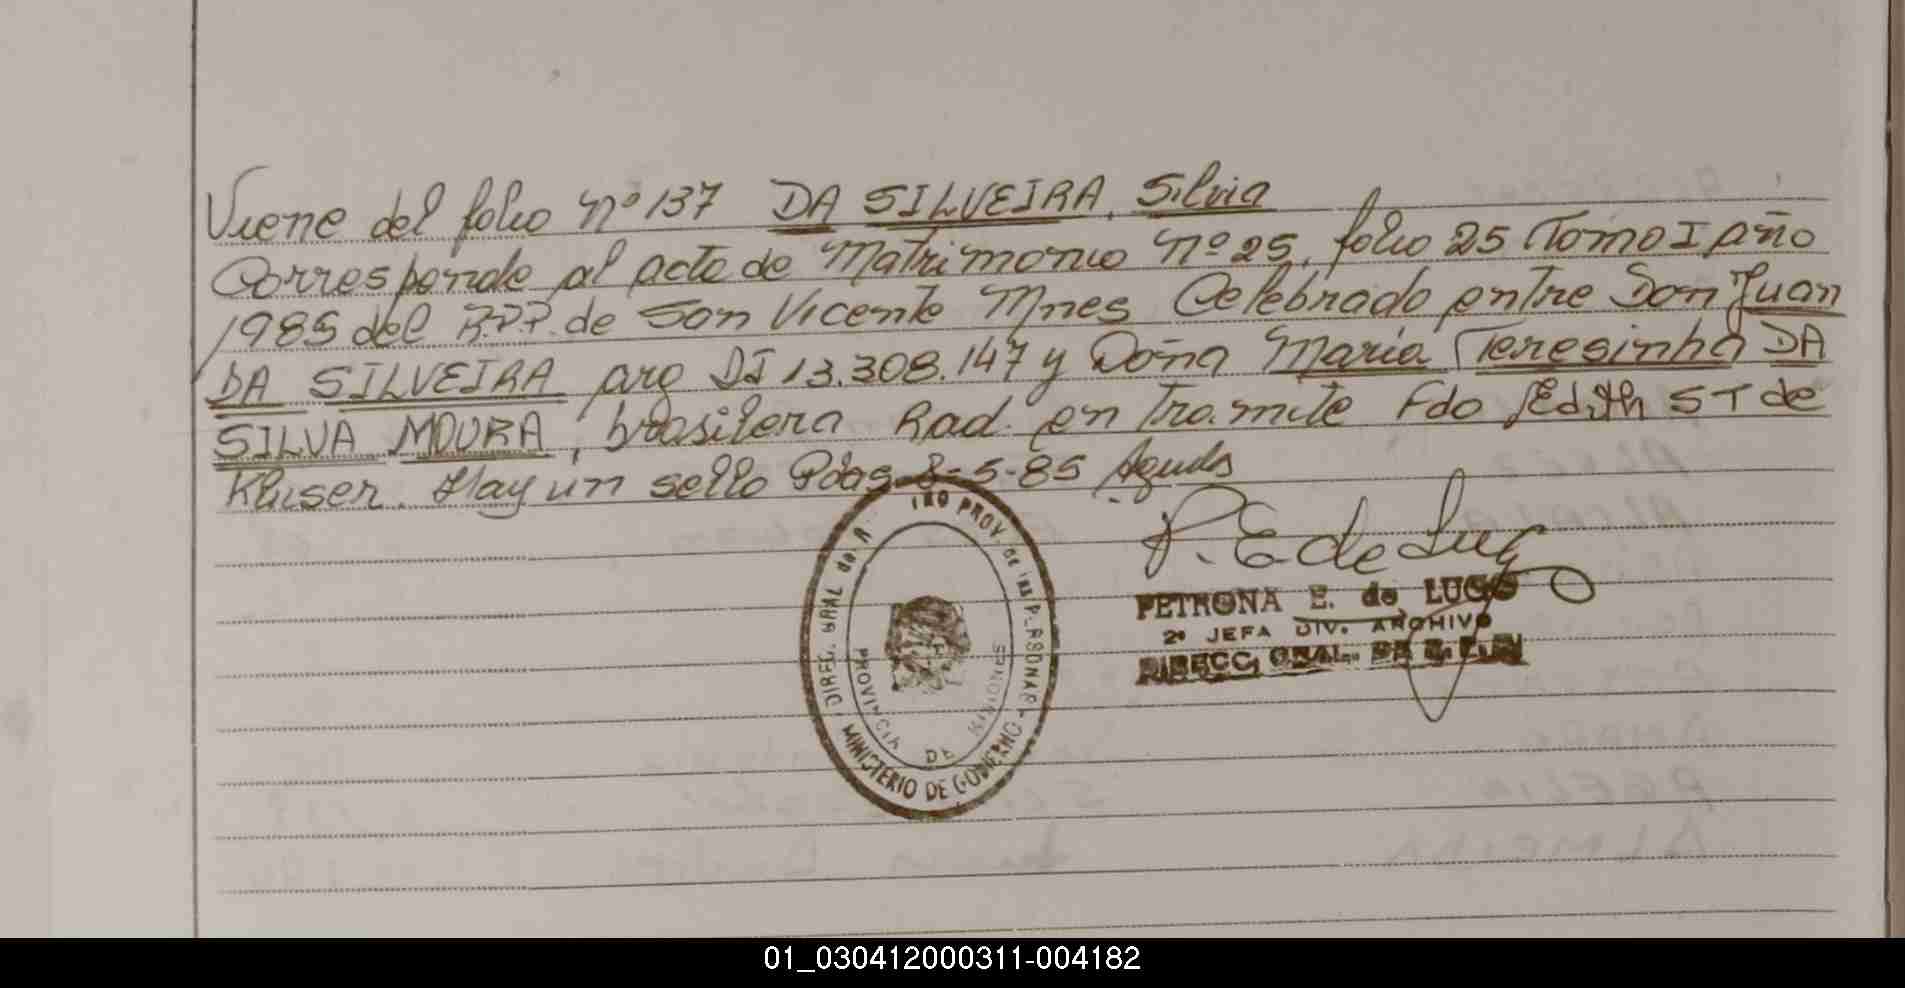 Viene del folio nº 137 DA SILVEIRA, Silvia
Corresponde al acta de Matrimonio nº 25, folio 25 Tomo I año
1985 del R.P.P. de San Vicente Mnes Celebrado entre Don Juan
DA SILVEIRA arg DI 13.308.147 y Doña Maria Teresinha DA
SILVA MOURA, brasilera Rad. en Tramite Fdo Edith ST de
Kluser. Hay un sello Pdas 8-5-85 Aguda
P. E de Lugo
PETRONA E. de LUGO
2ª JEFA DIV. ARCHIVO
DIRECC. GRAL. DE
DIREC. GRAL de PROV. de las PERSONAS
MINISTERIO DE GOBIERNO
PROVINCIA DE MISIONES
01_030412000311-004182